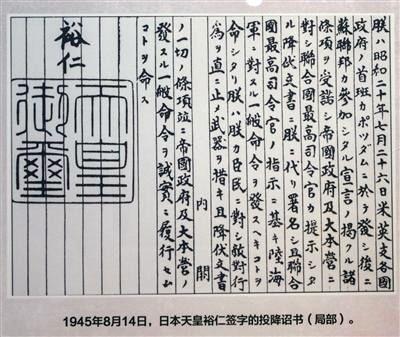 朕ハ昭和二十年七月二十六日米英支各國
政府ノ首班カポツダムニ於テ發シ後ニ
蘇聯邦カ參加シタル宣言ノ掲クル諸
條項ヲ受諾シ帝國政府及大本營ニ
對シ聯合國最高司令官カ提示シタ
ル降伏文書ニ朕ニ代リ署名シ且聯合
國最高司令官ノ指示ニ基キ陸海
軍ニ對スル一般命令ヲ發スヘキコトヲ
命シタリ朕ハ朕カ臣民ニ對シ敵對行
爲ヲ直ニ止メ武器ヲ措キ且降伏文書
内閣
ノ一切ノ條項竝ニ帝國政府及大本營ノ
發スル一般命令ヲ誠實ニ履行セム
コトヲ命ス
裕仁
天皇
御璽
1945年8月14日，日本天皇裕仁签字的投降诏书（局部）。